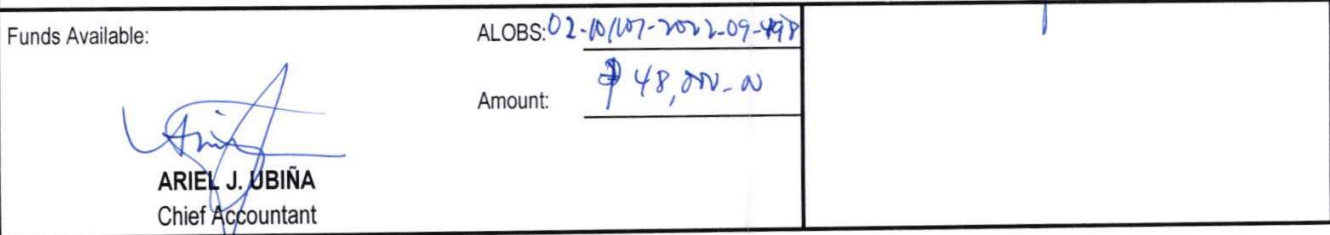 Funds Available:
ALOBS: 02-101101-2022-09-498
Amount: ₱ 48,000.00
ARIEL J. UBIÑA
Chief Accountant